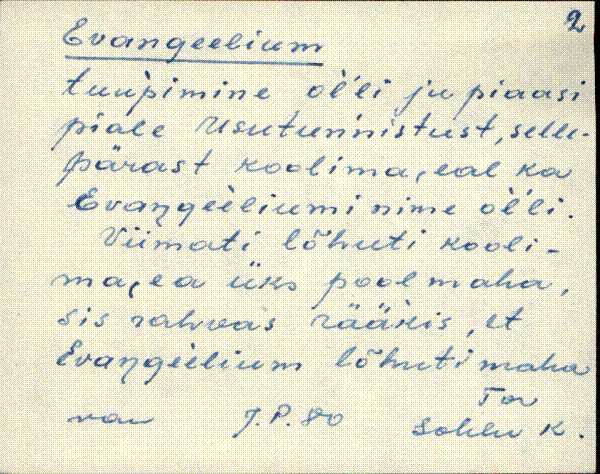 2
Evangeelium
tuupimine, ol'l'i ju piaasi
piale Usutunnistust, selle-
pärast koolima,eal ka
Evangèeliumi nime ol'l'i.
Viimati lõhuti kooli-
ma,ea üks pool maha,
sis rahvas rääkis, et
Evangèelium lõhuti maha
Tor
J.P. 80
K.